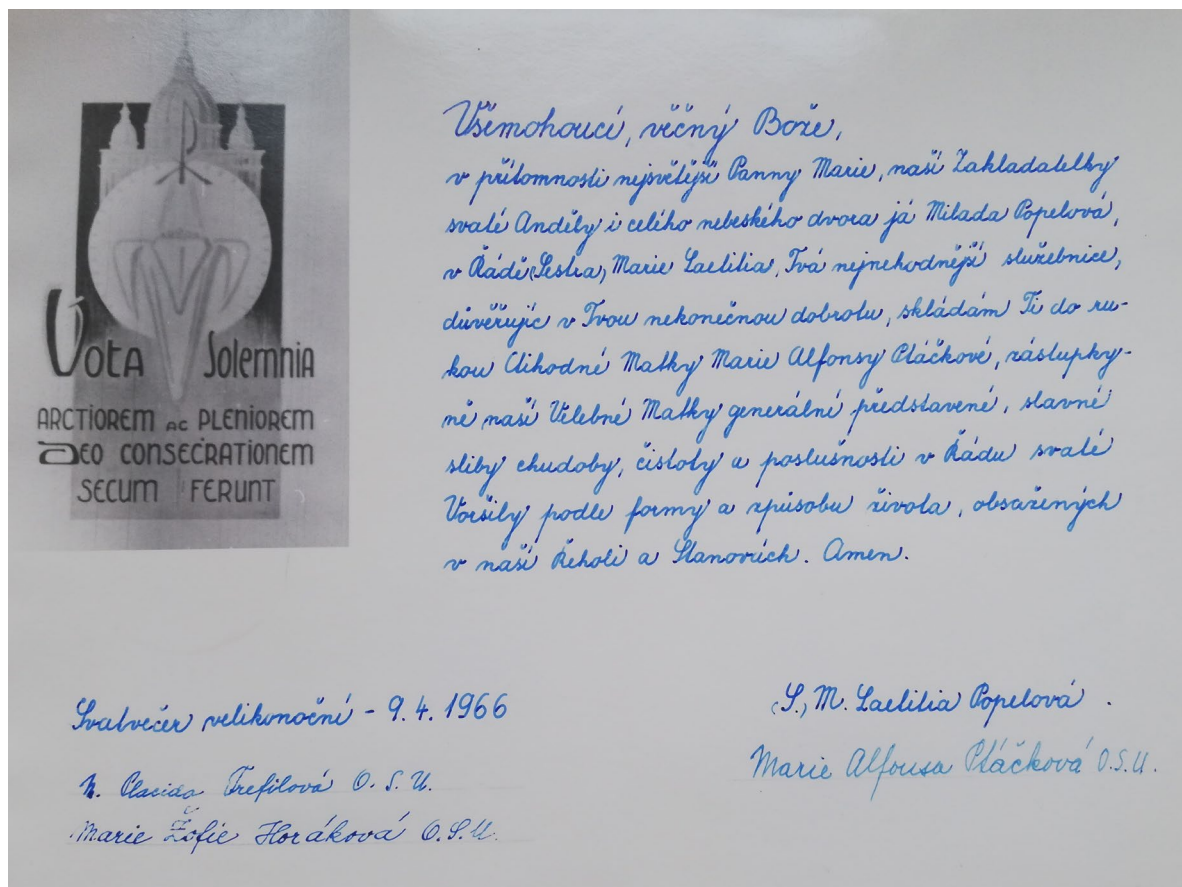 Vota Solemnia
ARCTIOREM AC PLENIOREM
DEO CONSECRATIONEM
SECUM FERUNT
Všemohoucí, věčný Bože,
v přítomnosti nejsvětější Panny Marie, naší Zakladatelky
svaté Anděly i celého nebeského dvora já Milada Popelová,
v Řádě (Sestra) Marie Laetitia, Tvá nejnehodnější služebnice,
důvěřujíc v Tvou nekonečnou dobrotu, skládám Ti do ru-
kou Ctihodné Matky Marie Alfonsy Ptáčkové, zástupky-
ně naší Velebné Matky generální představené, slavné
sliby chudoby, čistoty a poslušnosti v Řádu svaté
Voršily podle formy a způsobu života, obsažených
v naší Řeholi a Stanovách. Amen.
Svatvečer velikonoční - 9.4.1966
(S.) M. Laetitia Popelová
Marie Alfonsa Ptáčková O.S.U.
M. Placida Trefilová O.S.U.
Marie Žofie Horáková O.S.U.